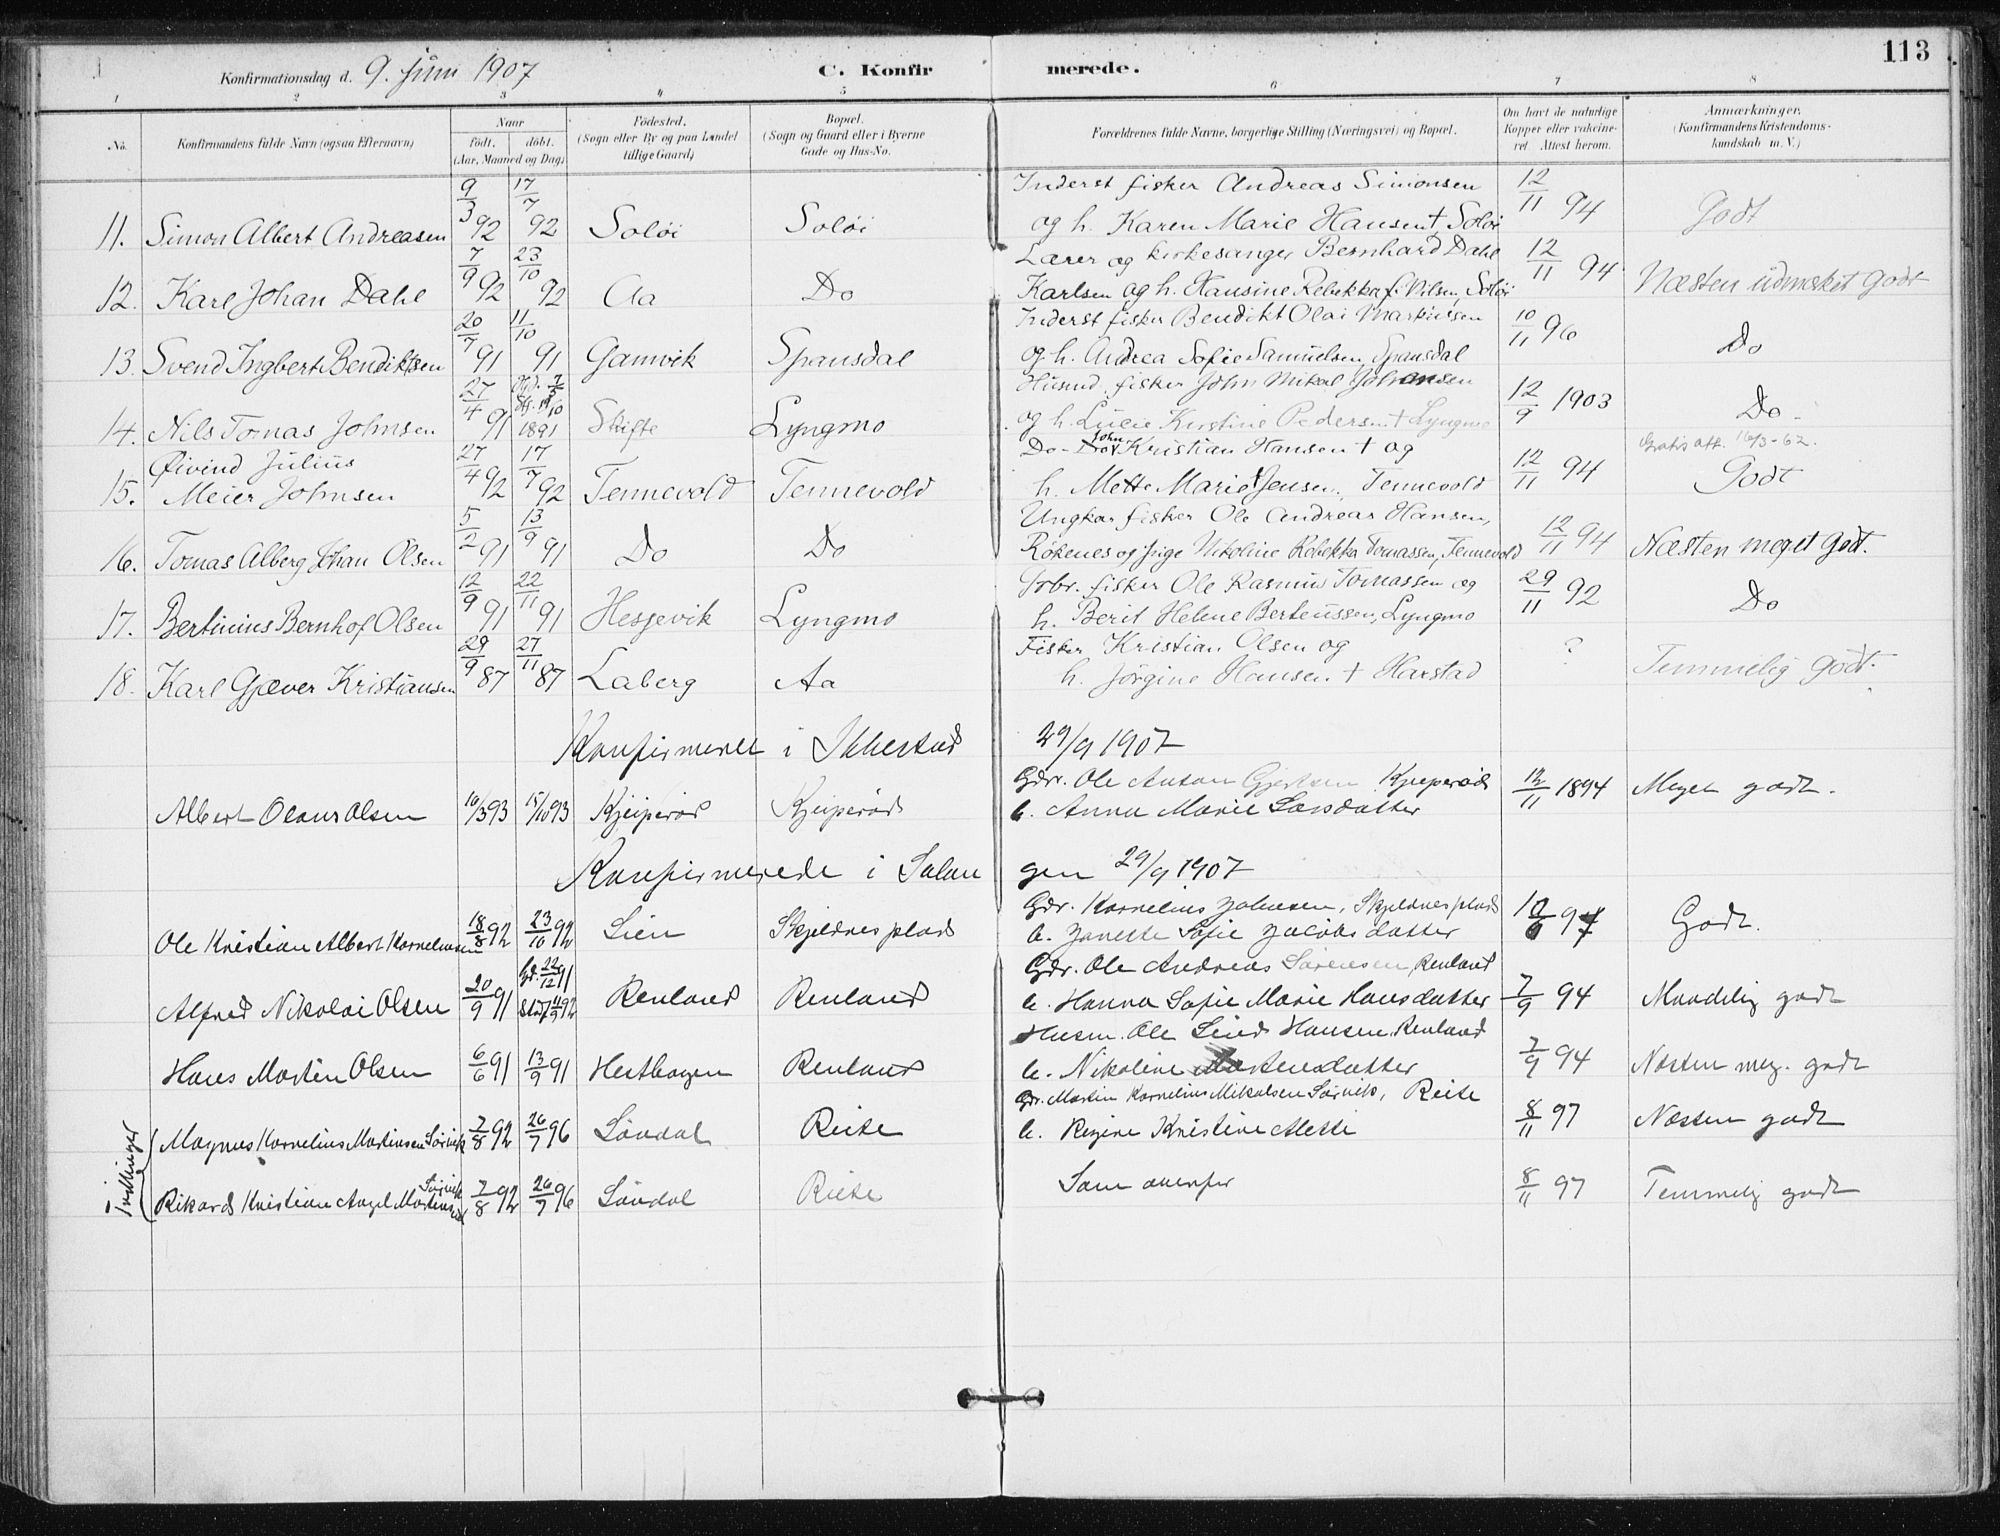 113
Konfirmationsdag d. 9. juni 1907 C. Konfirmerede.
1 2 3 4 5 6 7 8
No. Konfirmandens fulde Navn (ogsaa Efternavn) Naar født. døbt. (Aar, Maaned og Dag) Fødested. (Sogn eller By og paa Landet tillige Gaard) Bopæl. (Sogn og Gaard eller i Byerne Gade og Hus-No. Forældrenes fulde Navne, borgerlige Stilling (Næringsvei) og Bopæl. Om havt de naturlige Kopper eller vakcineret Attest herom. Anmærkninger. (Konfirmandens Kristendomskundskab m. V.)
11. Simon Albert Andreasen 9/3 92 17/7 92 Soløi Soløi Inderst fisker Andreas Simonsen og h. Karen Marie Hansen † Soløi 12/11 94 Godt
12. Karl Johan Dahl 7/9 92 23/10 92 Aa Do Lærer og kirkesanger Bernhard Dahl Karlsen og h. Hansine Rebekka f. Nilsen, Soløi 12/11 94 Næsten udmerket godt
13. Svend Ingbert Bendiktsen 20/7 91 11/10 91 Gamvik Spansdal Inderst fisker Bendikt Olai Markussen og h. Andrea Sofie Samuelsen, Spansdal 10/11 96 Do
14. Nils Tomas Johnsen 27/4 91 1891 Skifte Lyngmo Husmd. fisker John Mikal Johansen og h. Lucie Kirstine Pedersen † Lyngmo 12/9 1903 Do
Gratis att. 16/3-62.
15. Øivind Julius Meier Johnsen 27/4 92 17/7 92 Tennevold Tennevold Do- Do John Kristian Hansen † og h. Mette Marie Jensen, Tennevold 12/11 94 Godt
16. Tomas Alberg Johan Olsen 5/2 91 13/9 91 Do Do Ungkar fisker Ole Andreas Hansen, Røkenes og pige Nikoline Rebekka Tomassen, Tennevold 12/11 94 Næsten meget godt.
17. Bertinius Bernhof Olsen 12/9 91 22/11 91 Hesjevik Lyngmo fisker Ole Rasmus Tomassen og h. Berit Helene Berteussen, Lyngmo 29/11 92 Do
18. Karl Gjæver Kristiansen 29/9 87 27/11 87 Laberg Aa Fisker Kristian Olsen og h. Jørgine Hansen † Harstad ? Temmelig godt.
Konfirmeret i Ibbestad 29/9 1907
Albert Olaus Olsen 16/3 93 15/10 93 Kjeiperød Kjeiperød Gdr. Ole Anton Gjertsen Kjeiperød h. Anna Marie Larsdatter 12/11 1894 Meget godt.
Konfirmerede i Salangen 29/9 1907
Ole Kristian Albert Kornelussen 18/8 92 23/10 92 Lien Skjeldnesplads Gdr. Kornelius Johnsen, Skjeldnesplads h. Janette Sofie Jacobsdatter 10/6 97 Godt.
Alfred Nikolai Olsen 20/9 91 Gd. 22/12 91 Renland Renland Gdr. Ole Andreas Sørensen, Renland h. Hanna Sofie Marie Hansdatter 7/9 94 Maadelig godt
Hans Martin Olsen 6/6 91 13/9 91 Hesthagen Renland Husm. Ole Hansen, Renland h. Nikoline Mortensdatter 7/9 94 Næsten meg. godt
tvillinger
Magnus Kornelius Martinsen Sørvik 7/8 92 26/7 96 Løvdal Reite Gdr. Martin Kornelius Mikalsen Sørvik, Reite h. Regine Kristine Aletti 8/11 97 Næsten godt
Rikard Kristian Angel Martinsen Sørvik 7/8 92 26/7 96 Løvdal Reite Som ovenfor 8/11 97 Temmelig godt